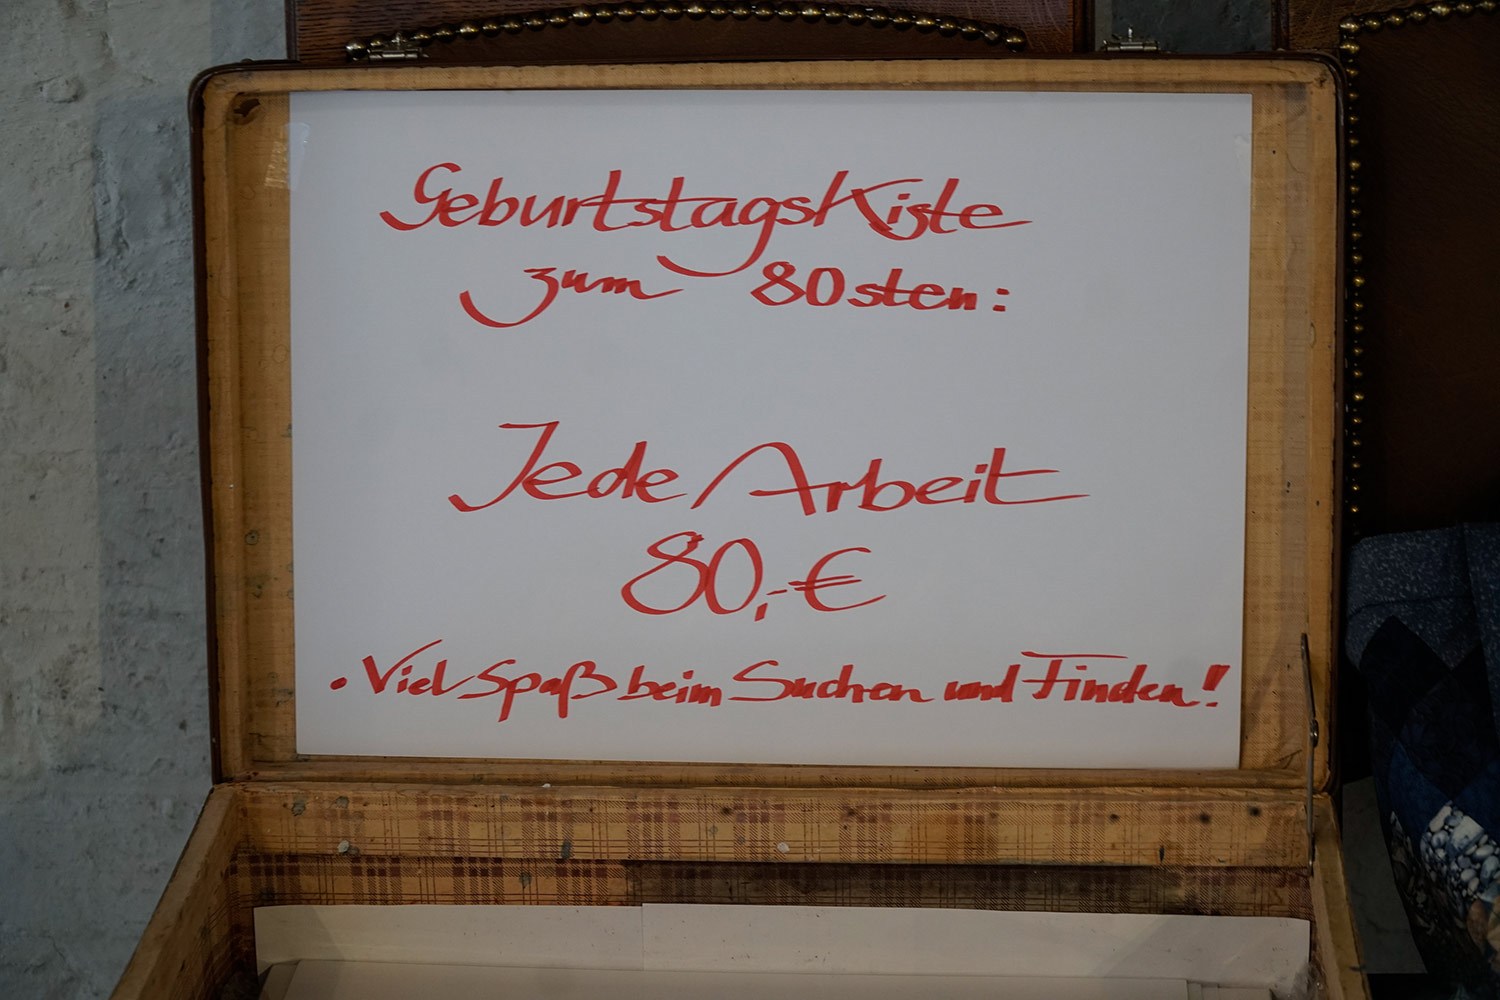 GeburtstagsKiste
zum 80sten:
Jede Arbeit
80,-€
. Viel Spaß beim Suchen und Finden!